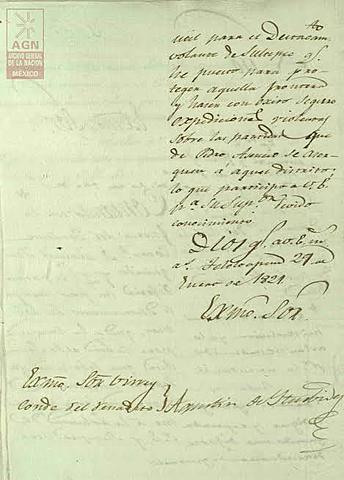 AGN
ARCHIVO GENERAL
DE LA NACIÓN
MÉXICO
util para el Destacam.to
volante de Sultepec q.e
he puesto para pro-
teger aquella frontera
y hacer con exito seguro
expediciones
sobre las partidas que
de Pedro Asencio se acer-
quen á aquel distrito;
lo que participo a V.E.
p.a su sup.or devido
conocimiento.
Dios g.e a V.E. m.s
a.s Teloloapan 27 de
Enero de 1821.
Exmo. Sor.
Exmo. Sor. Virrey
Conde del Venadito
Agustin de Iturbide